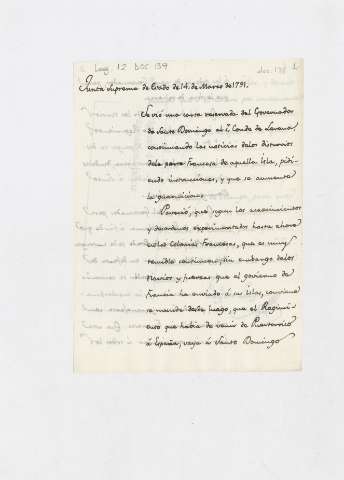 Leg 12 DOC 139
doc. 139 1
Junta Suprema de Estado de 14. de Marzo de 1791.
Se vió una carta reservada del Governador
de Santo Domingo al S. Conde de Lerena,
continuando las noticias de los disturvios
de la parte Francesa de aquella Isla, pidi-
endo instrucciones, y que se aumente
la guarnicion.
Pareció, que segun los acaecimientos
y desordenes experimentados hasta ahora
en las Colonias Francesas, que es muy
temible continuen, sin embargo de los
Navios y fuerzas que el govierno de
Francia ha enviado á sus Islas, conviene
se mande desde luego, que el Regimi-
ento que habia de venir de Puertorrico
á España, vaya á Santo Domingo